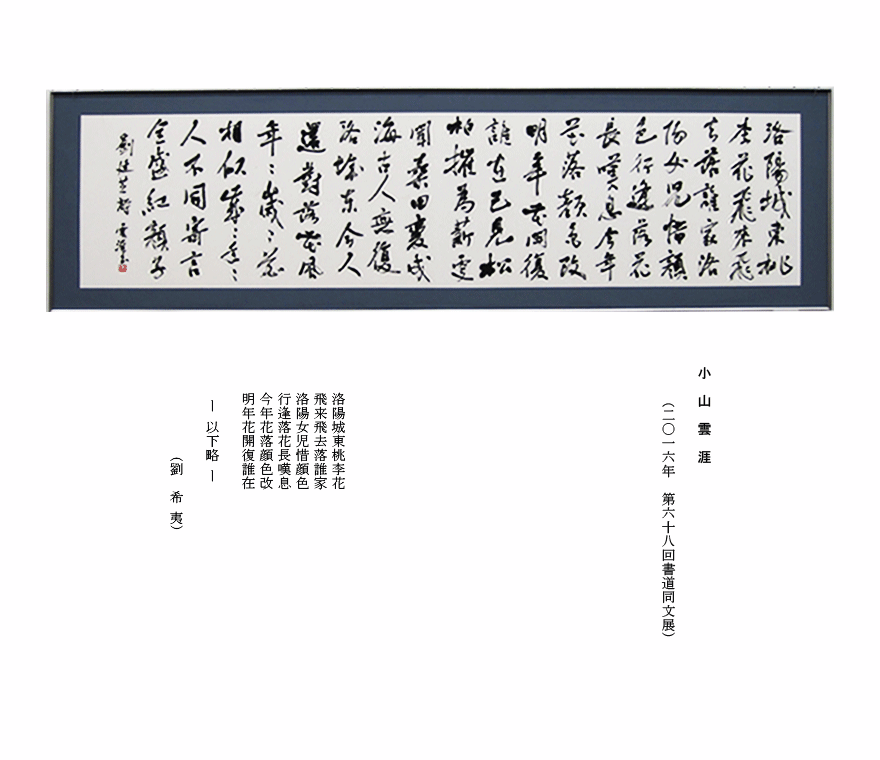 洛陽城東桃
李花飛来飛
去落誰家洛
陽女児惜顔
色行逢落花
長嘆息今年
花落顔色改
明年花開復
誰在已見松
柏摧為薪更
聞桑田變成
海古人無復
洛城東今人
還對落花風
年々歳々花
相似歳々年々
人不同寄言
全盛紅顔子
劉廷芝詩 雲涯書
小山雲涯
（二〇一六年　第六十八回書道同文展）
洛陽城東桃李花
飛来飛去落誰家
洛陽女児惜顔色
行逢落花長嘆息
今年花落顔色改
明年花開復誰在
ー 以下略 ー
（劉　希　夷）